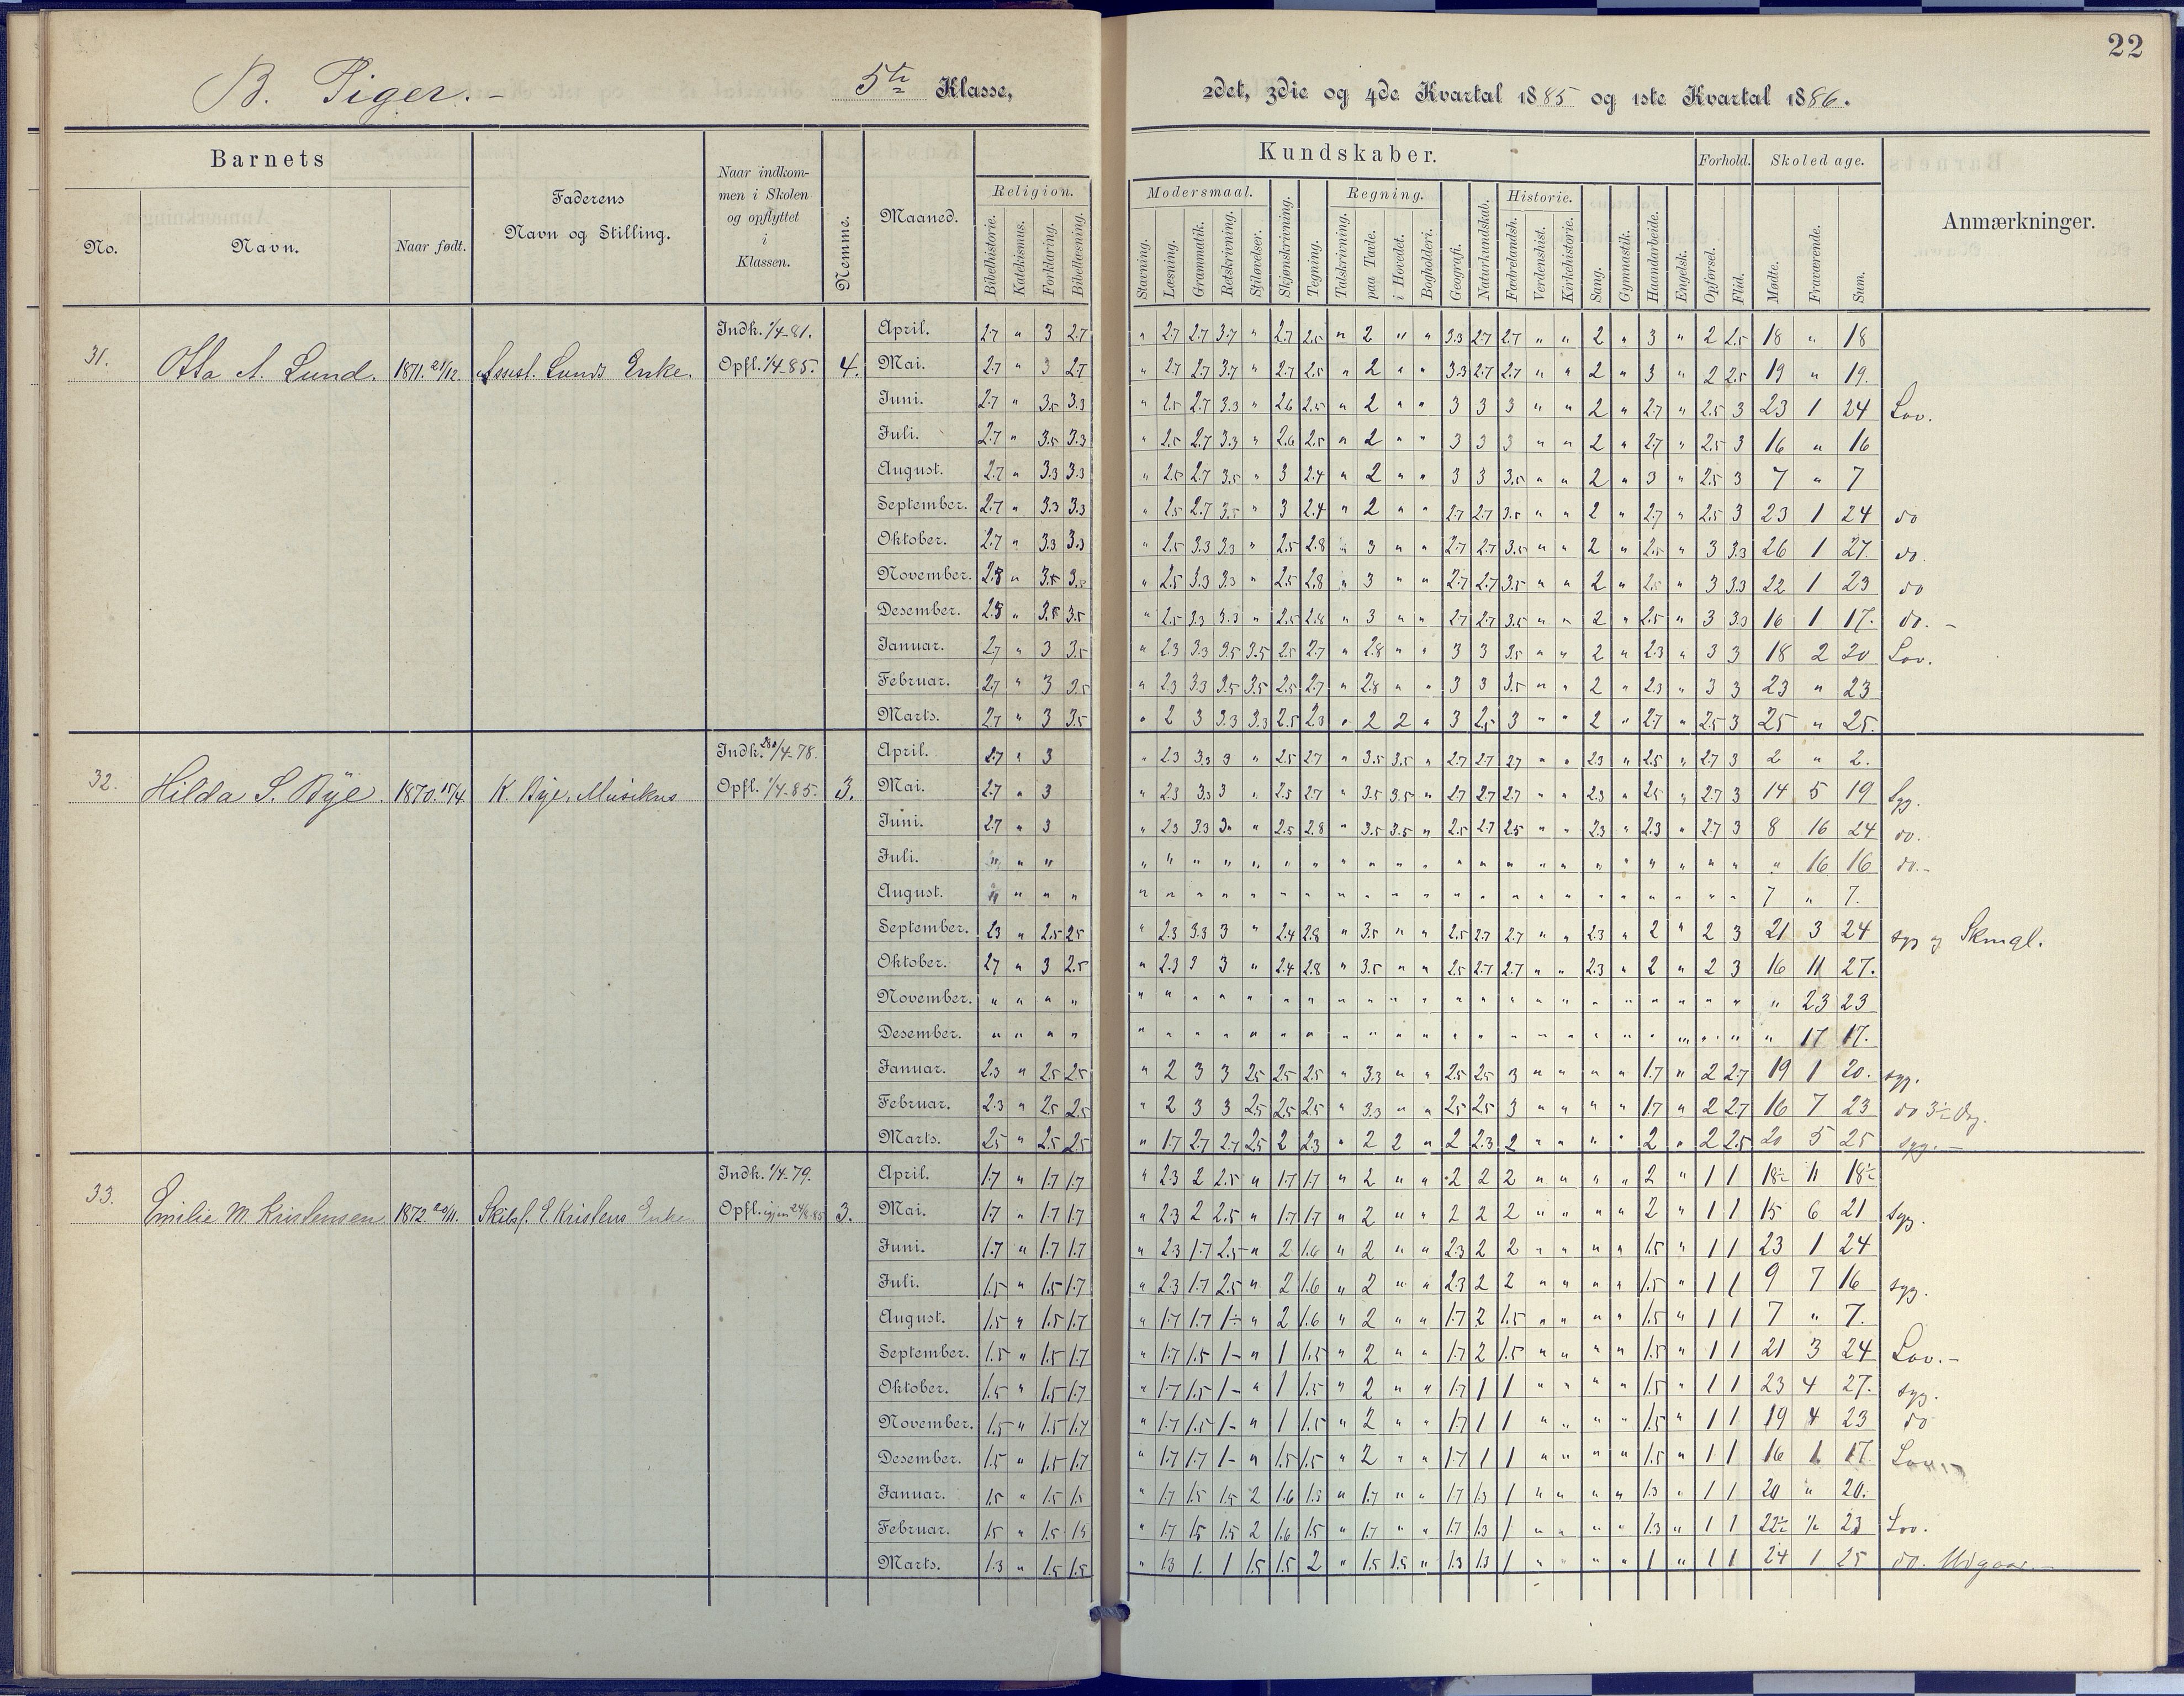 22
B. Piger.
5te Klasse,
2det, 3die og 4de Kvartal 1885 og 1ste Kvartal 1886.
Barnets
Faderens
Navn og Stilling.
Naar indkommen i Skolen og opflyttet i Klassen.
Nemme.
Maaned.
Kundskaber.
Forhold.
Skoledage.
Anmærkninger.
No.
Navn.
Naar født.
Religion.
Modersmaal.
Regning.
Historie.
Bibelhistorie.
Katekismus.
Forklaring.
Bibellæsning.
Stavning.
Læsning.
Grammatik.
Retskrivning.
Stiløvelser.
Skjønskrivning.
Tegning.
Talskrivning.
paa Tavle.
i Hovedet.
Bogholderi.
Geografi.
Naturkundskab.
Fædrelandsh.
Verdenshist.
Kirkehistorie.
Sang.
Gymnastik.
Haandarbeide.
Engelsk.
Opførsel.
Flid.
Mødte.
Fraværende.
Sum.
31. Otta A. Lund. 1871. 21/12. Assist. Lunds Enke. Indk. 1/4-81. Opfl. 1/4 85. 4.
April. 2.7 " 3 2.7 " 2.7 2.7 3.7 " 2.7 2.5 " 2 " " 3.3 2.7 2.7 " " 2 " 3 " 2 2.5 18 " 18
Mai. 2.7 " 3 2.7 " 2.7 2.7 3.7 " 2.7 2.5 " 2 " " 3.3 2.7 2.7 " " 2 " 3 " 2 2.5 19 " 19.
Juni. 2.7 " 3.5 3.3 " 2.5 2.7 3.3 " 2.6 2.5 " 2 " " 3 3 3 " " 2 " 2.7 " 2.5 3 23 1 24 Lov.
Juli. 2.7 " 3.5 3.3 " 2.5 2.7 3.3 " 2.6 2.5 " 2 " " 3 3 3 " " 2 " 2.7 " 2.5 3 16 " 16
August. 2.7 " 3.3 3.3 " 2.5 2.7 3.5 " 3 2.4 " 2 " " 3 3 3.5 " " 2 " 3 " 2.5 3 7 " 7
September. 2.7 " 3.3 3.3 " 2.5 2.7 3.5 " 3 2.4 " 2 " " 2.7 2.7 3.5 " " 2 " 2.7 " 2.5 3 23 1 24 do
Oktober. 2.7 " 3.3 3.3 " 2.5 3.3 3.3 " 2.5 2.8 " 3 " " 2.7 2.7 3.5 " " 2 " 2.5 " 3 3.3 26 1 27. do.
November. 2.8 " 3.5 " 2.5 3.3 3.3 " 2.5 2.8 " 3 " " 2.7 2.7 3.5 " " 2 " 2.5 " 3 3.3 22 1 23 do
Desember. 2.8 " 3.5 3.5 " 2.5 3.3 3.3 " 2.5 2.8 " 3 " " 2.7 2.7 3.5 " " 2 " 2.5 " 3 3.3 16 1 17. do. -
Januar. 2.7 " 3 3.5 " 2.3 3.3 3.5 3.5 2.5 2.7 " 2.8 " " 3 3 3.5 " " 2 " 2.3 " 3 3 18 2 20 Lov.
Februar. 2.7 " 3 3.5 " 2.3 3.3 3.5 3.5 2.5 2.7 " 2.8 " " 3 3 3.5 " " 2 " 2.3 " 3 3 23 " 23
Marts. 2.7 " 3 3.5 " 2 3 3.3 3.3 2.5 2.3 " 2 2 " 3 2.5 3 " " 2 " 2.7 " 2.5 3 25 " 25.
32. Hilda S. Bÿe. 1870. 15/4 K. Bye, Musikus Indk. /4-78. Opfl. 1/4-85. 3.
April. 2.7 " 3 " 2.3 3.3 3 " 2.5 2.7 " 3.5 3.5 " 2.7 2.7 2.7 " " 2.3 " 2.5 " 2.7 3 2 " 2.
Mai. 2.7 " 3 " 2.3 3.3 3 " 2.5 2.7 " 3.5 3.5 " 2.7 2.7 2.7 " " 2.3 " 2.5 " 2.7 3 14 5 19 Syg.
Juni. 2.7 " 3 " 2.3 3.3 3 " 2.5 2.8 " 3.5 3.5 " 2.5 2.7 2.5 " " 2.3 " 2.3 " 2.7 3 8 16 24 do.
Juli. " " " " " " " " " " " " " " " " " " " " " " " " " " 16 16 do.-
August. " " " " " " " " " " " " " " " " " " " " " " " " " " 7 " 7.
September. 2.3 " 2.5 2.5 " 2.3 3.3 3 " 2.4 2.8 " 3.5 " " 2.5 2.7 2.7 " " 2.3 " 2 " 2 3 21 3 24 syg og Skmgl.
Oktober. 2.7 " 3 2.5 " 2.3 3 3 " 2.4 2.8 " 3.5 " " 2.5 2.7 2.7 " " 2.3 " 2 " 2 3 16 11 27.
November. " " " " " " " " " " " " " " " " " " " " " " " " " " " 23 23
Desember. " " " " " " " " " " " " " " " " " " " " " " " " " " " 17 17.
Januar. 2.3 " 2.5 2.5 " 2 3 3 2.5 2.5 2.5 " 3.3 " " 2.5 2.5 3 " " " " 1.7 " 2 2.7 19 1 20. syg.
Februar. 2.3 " 2.5 2.5 " 2 3 3 2.5 2.5 2.5 " 3.3 " " 2.5 2.5 3 " " " " 1.7 " 2 2.7 16 7 23 do
Marts. 2.5 " 2.5 2.5 " 1.7 2.7 2.7 2.5 2 2.3 " 2 2 " 2 2.3 2 " " " " 2 " 2 2.5 20 5 25 syg.-
33. Emilie M. Kristensen 1872. 20/11. Skibsf. E. Kristens Enke Indk. 1/4-79. Opfl. igjen 3.
April. 1.7 " 1.7 1.7 " 2.3 2 2.5 " 1.7 1.7 " 2 " " 2 2 2 " " " " 2 " 1 1 18½ " 18½
Mai. 1.7 " 1.7 1.7 " 2.3 2 2.5 " 1.7 1.7 " 2 " " 2 2 2 " " " " 2 " 1 1 15 6 21 syg.
Juni. 1.7 " 1.7 1.7 " 2.3 1.7 2.5 " 2 1.6 " 2 " " 2.3 2 2 " " " " 1.5 " 1 1 23 1 24
Juli. 1.5 " 1.5 1.7 " 2.3 1.7 2.5 " 2 1.6 " 2 " " 2.3 2 2 " " " " 1.5 " 1 1 9 7 16 syg.
August. 1.5 " 1.5 1.7 " 1.7 1.7 1- " 2 1.6 " 2 " " 1.7 2 1.5 " " " " 1.5 " 1 1 7 " 7.
September. 1.5 " 1.5 1.7 " 1.7 1.5 1- " 1 1.5 " 2 " " 1.7 2 1.5 " " " " 1.5 " 1 1 21 3 24 Lov.-
Oktober. 1.5 " 1.5 1.7 " 1.7 1.5 1- " 1 1.5 " 2 " " 1.7 1 1 " " " " 1.5 " 1 1 23 4 27. syg.
November. 1.5 " 1.5 1.7 " 1.7 1.5 1- " 1 1.5 " 2 " " 1.7 1 1 " " " " 1.5 " 1 1 19 4 23 do
Desember. 1.5 " 1.5 1.7 " 1.7 1.7 1- " 1.5 1.5 " 2 " " 1.7 1 1 " " " " 1.5 " 1 1 16 1 17
Januar. 1.5 " 1.5 1.5 " 1.7 1.5 1.5 2 1.6 1.5 " 1.7 " " 1.7 1.3 1 " " " " 1.3 " 1 1 20 " 20.
Februar. 1.5 " 1.5 1.5 " 1.7 1.5 1.5 2 1.6 1.5 " 1.7 " " 1.7 1.3 1 " " " " 1.3 " 1 1 22½ ½ 23 Lov.
Marts. 1.3 " 1.5 1.5 " 1.3 1. 1 1.5 1.5 2 " 1.5 1.5 " 1.3 1.3 1 " " " " 1 " 1 1 24 1 25 do. Udgaar.-